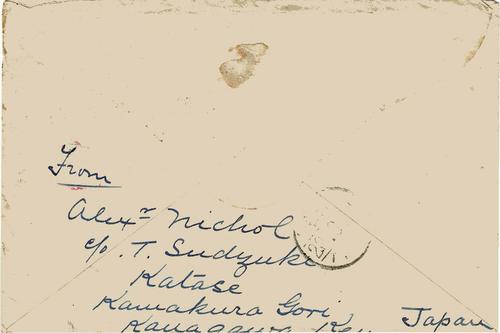 From
Alexr Nichol
c/o. T. Sudzuki
Katase
Kamakura Gori, Japan
Kanagawa Ken